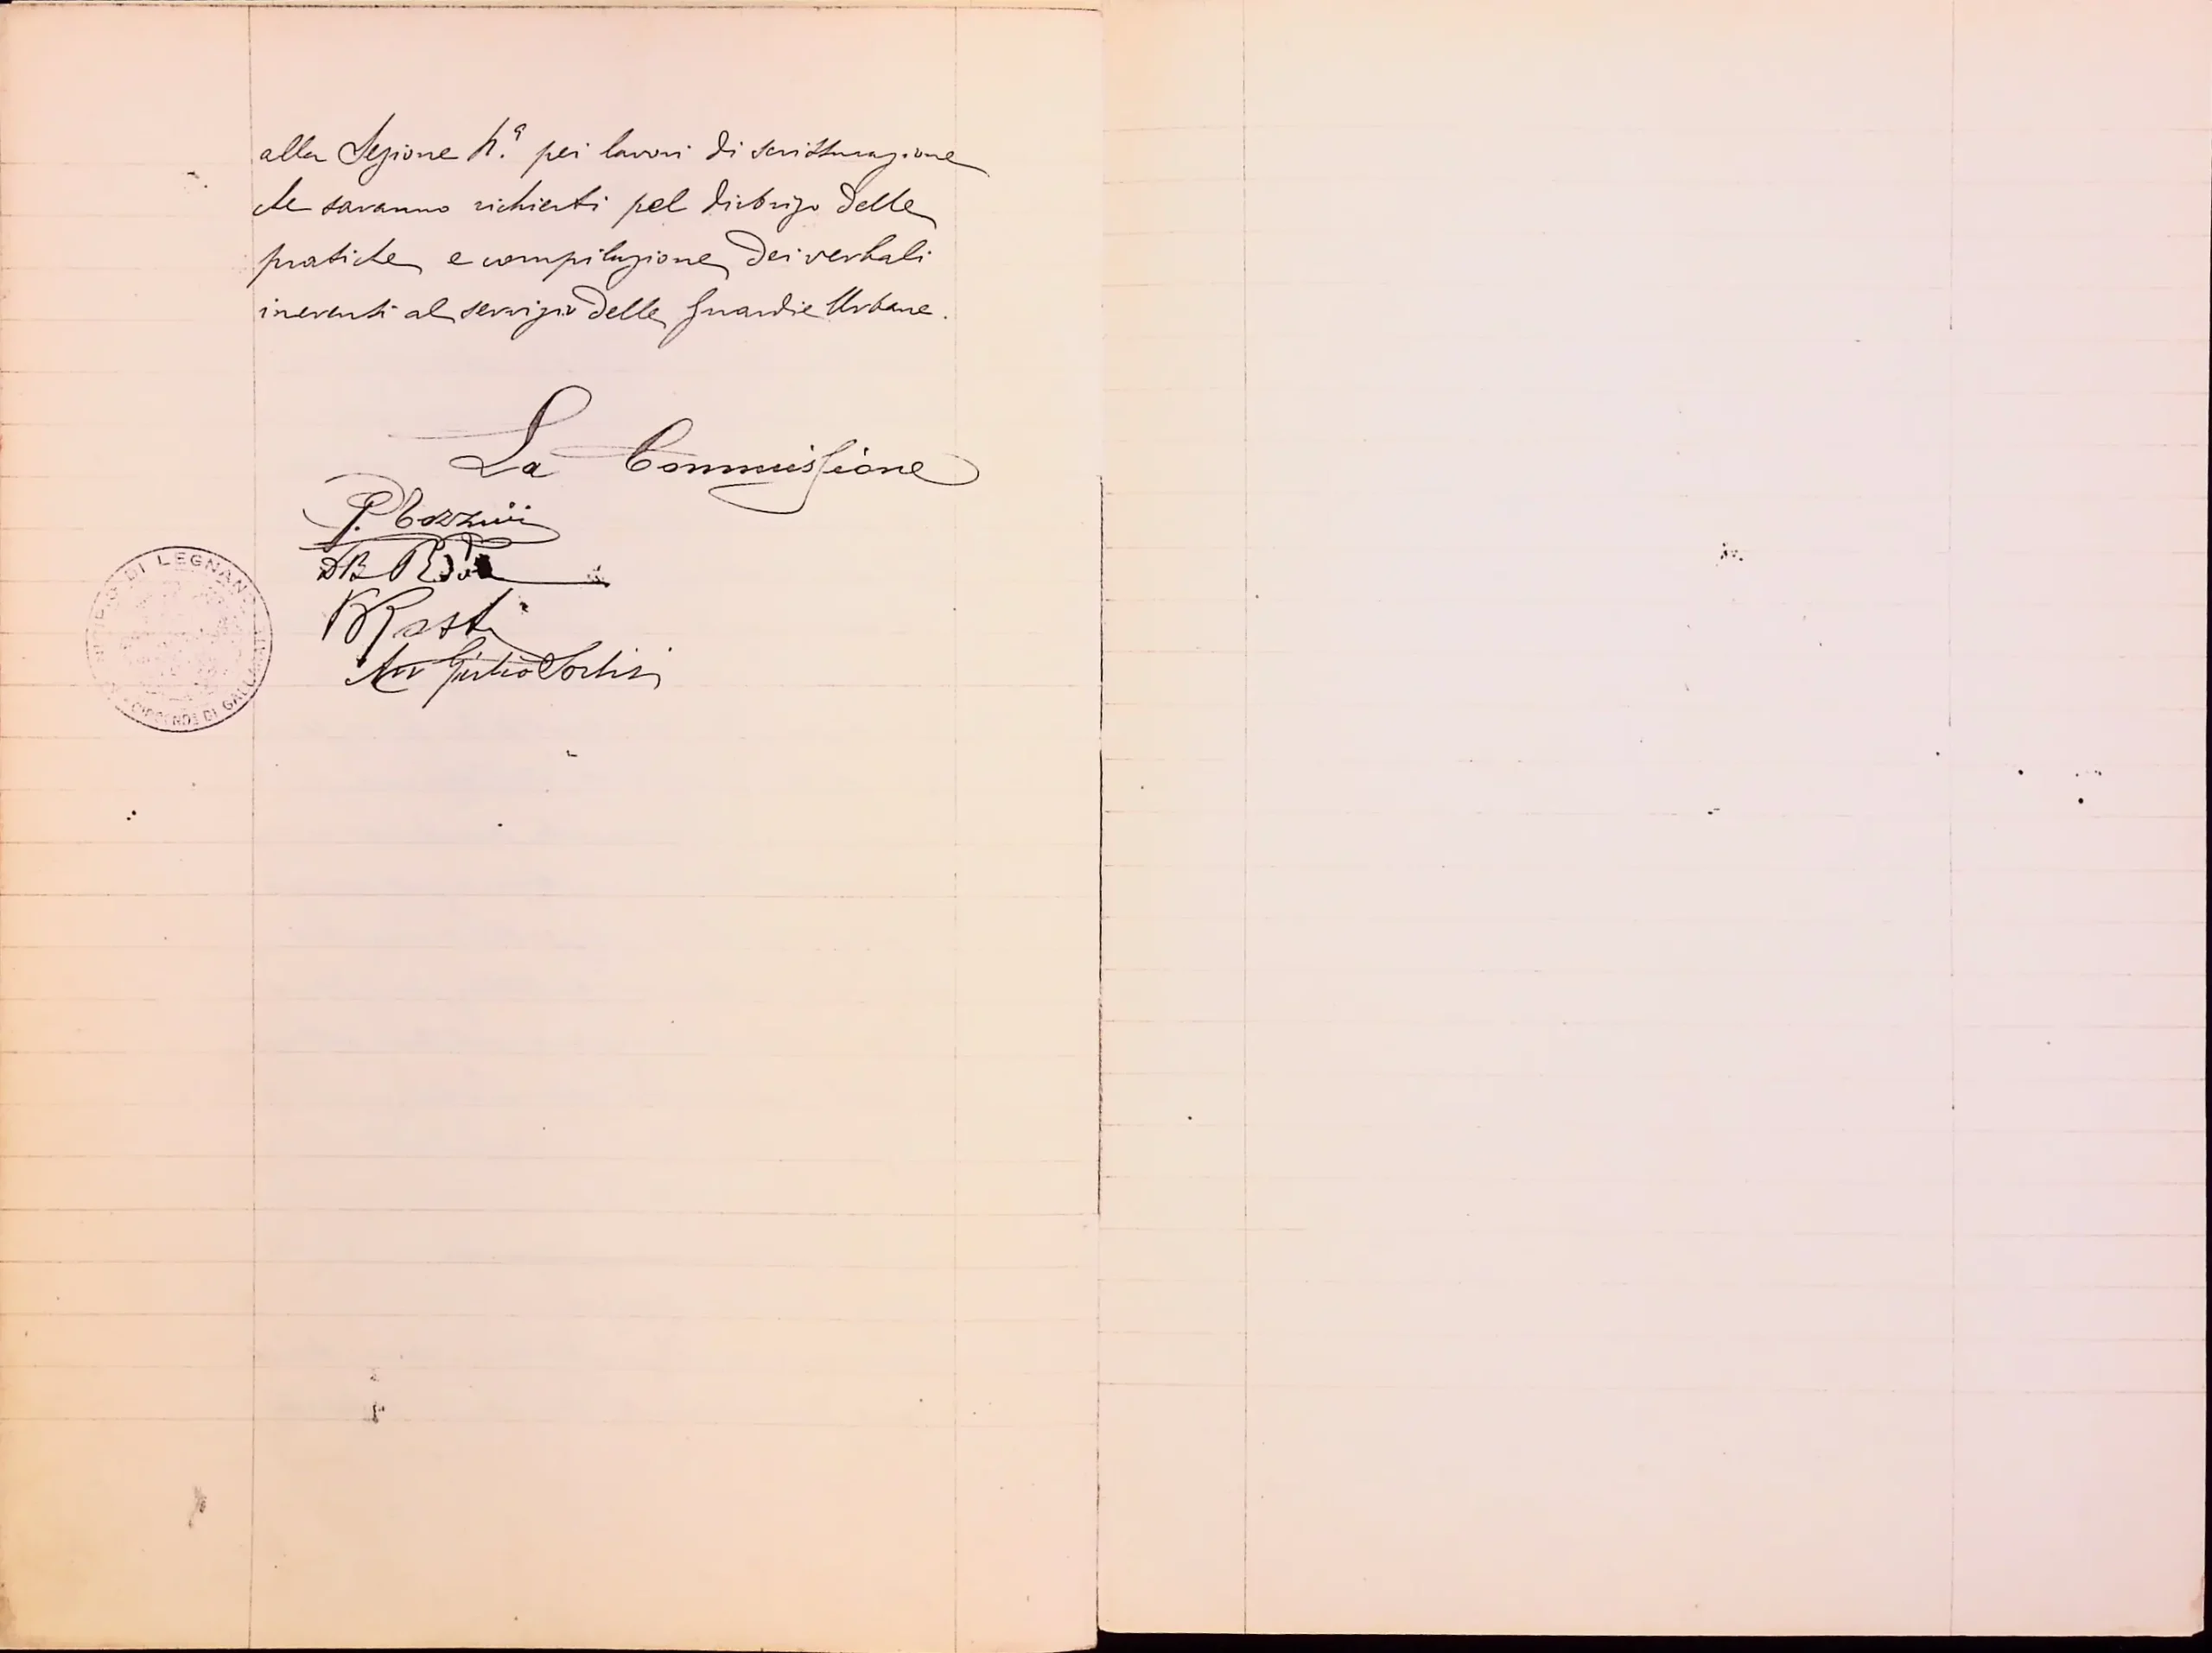 alla Sezione 4.ª pei lavori di scritturazione
che saranno richiesti pel disbrigo delle
pratiche e compilazione dei verbali
inerenti al servizio delle Guardie Urbane.
La Commissione
P. Bozzini
DI LEGNANO
DI GALLARATE